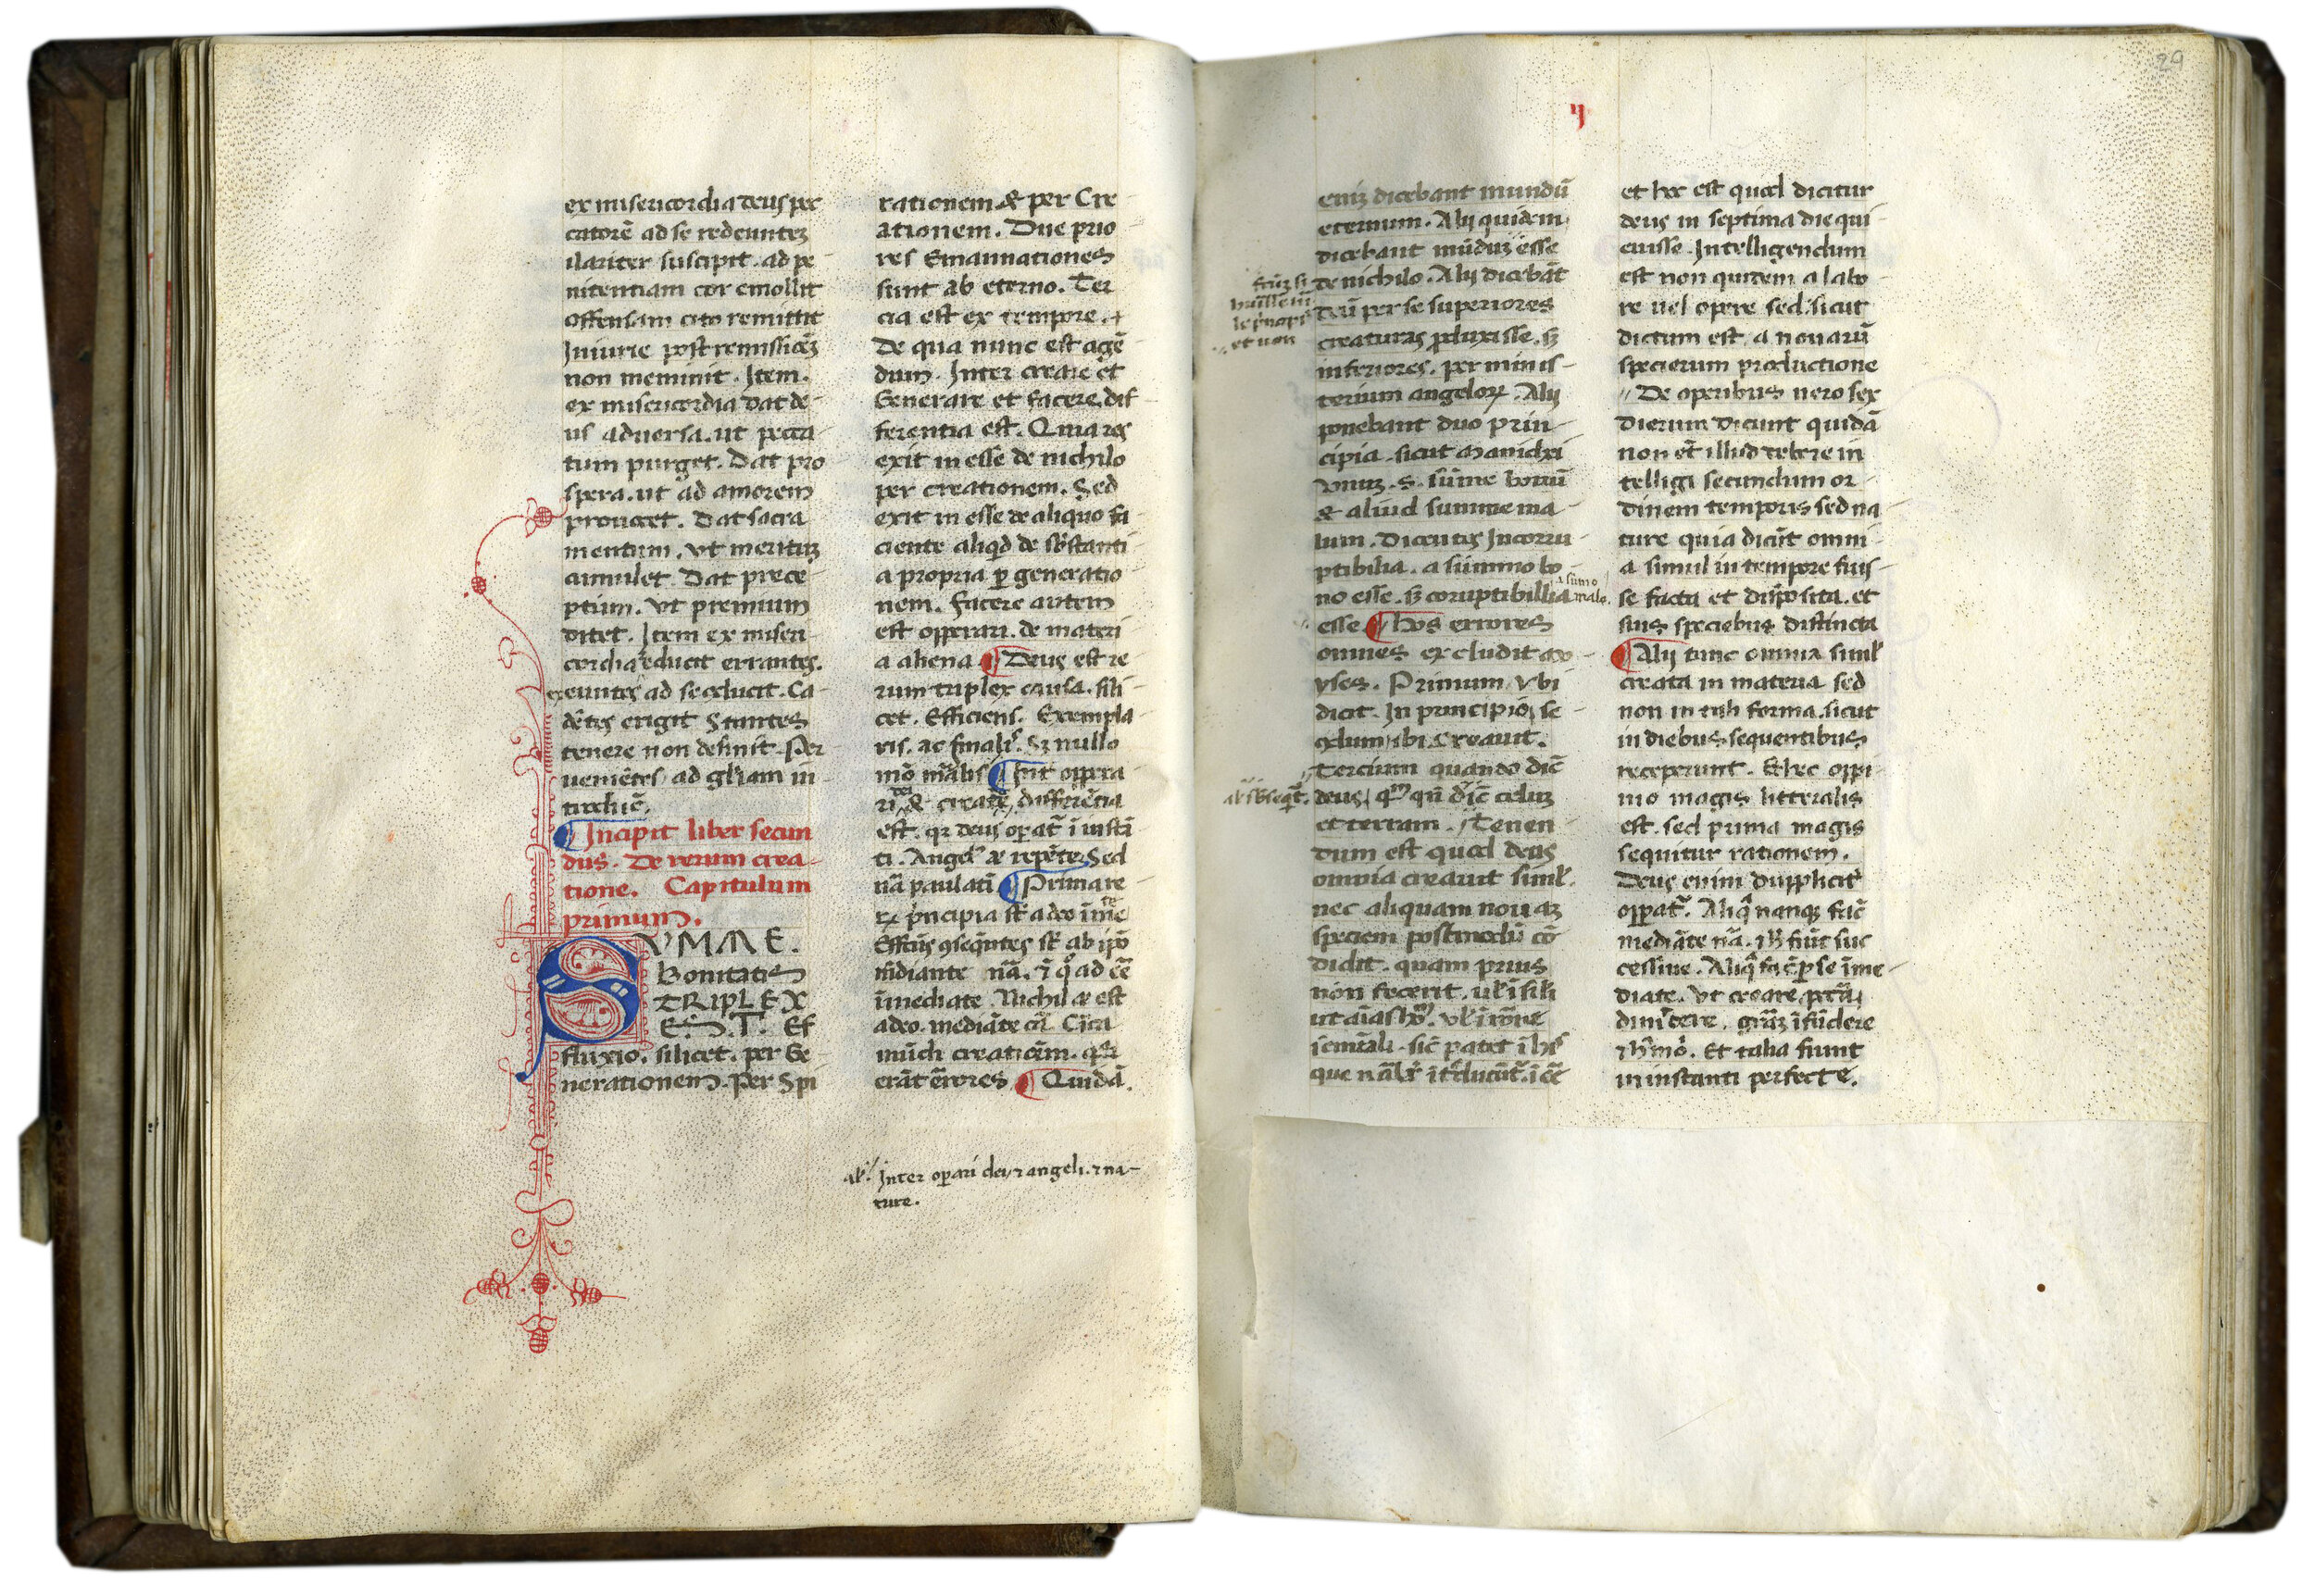 ex misericordia deus pec
catorē ad se redeuntez
ilariter suscipit. ad pe
nitentiam cor emollit
offensam cito remittit
Iniurie post remissiōez
non meminit. Item.
ex misericordia dat de
us aduersa. ut pecca
tum purget. Dat pro
spera. ut ad amorem
prouocet. Dat sacra
mentum. vt meritum
cumulet. Dat prece
ptum. vt premium
ditet. Item ex miseri
cordia reducit errantes.
exeuntes ad se reducit. Ca
dētes erigit Stantes
tenere non desinit. Per
ueniētes ad gl'iam in
troduc̄.
Incipit liber secun
dus. De rerum crea
tione. Capitulum
primum.
SVMME.
Bonitatis
TRIPLEX
EST. Ef
fluxio. silicet. per Ge
nerationem. Per Spi
rationem. & per Cre
ationem. Due prio
res Emannationes
sunt ab eterno. Ter
cia est ex tempore.
De qua nunc est agē
dum. Inter creare et
Generare et facere. dif
ferentia est. Quia res
exit in esse de nichilo
per creationem. Sed
exit in esse de aliquo fa
ciente aliqd de sb̄stanti
a propria p generatio
nem. facere autem
est opperari. de materi
a aliena. Deus est re
rum triplex causa. sili
cet. Efficiens. Exempla
ris. ac finalis. Sz nullo
mō mālis Inter oppera
ri dei & creare, differētia
est. qz deus opat̄ ī instā
ti. Angel' repēte. Sed
nā paulatī Prima re
rz prīncipia st̄ a deo īmediate
Effcūs ꝯseqūtes st̄ ab ipō
mediante nā.
īmediate. Nichil est
adeo. mediāte
mūdi creatiōem.
erāt ērrores Quidā.
al' Inter opari dei, ⁊ angeli. ⁊ na
ture.
29
ij
enīz dicebant mundū
eternum. Alij quidem
dicebant mūduz esse
de nichilo. Alij dicebāt
deū per se superiores
creaturas produxisse. sz
inferiores. per minis
terium angeloꝝ. Alij
ponebant duo prin
cipia. sicut manichei
vnuz. s. sūme bonū
& aliud summe ma
lum. Dicentes Incorru
ptibilia. a summo bo
no esse. sz coruptibillia a sūmo malo.
esse Hos errores
omnes excludit mo
yses. Primum vbi
dicit. In principio, se
cdum ibi. Creauit.
Tercium quando dic̄
deus, celuz
et terram. Tenen
dum est quod deus
omnia creauit simł.
nec aliquam nouaz
speciem postmodū cō
didit. quam prius
non fecerit.
et hec est quod dicitur
deus in septima die qui
euisse. Intelligendum
est non quidem a labo
re uel opere sed. sicut
dictum est. a nouarū
specierum productione
De operibus uero sex
Dierum Dicunt quidā
non ēt illud debere in
telligi secundum or
dinem temporis sed na
ture quia dicūt omni
a simul in tempore fuis
se facta et disposita. et
suis speciebus distincta
Alij tunc omnia simł
creata in materia sed
non in tali forma. sicut
in diebus sequentibus
receperunt. Et hec oppi
nio magis litteralis
est. sed prima magis
sequitur rationem.
Deus enim dupplicit'
oppat̄. Aliq̄ nanqz fac̄
mediāte nā. fiūt suc
cessiue. Aliq̄ fac̄ p se īme
diate. Vt creare
īfūdere
Et talia fiunt
in instanti perfecte.